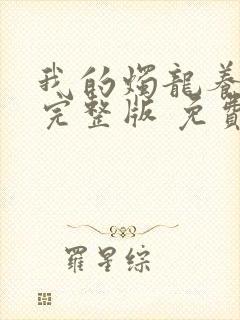 我的燭龍養
完整版 免費
羅星綜